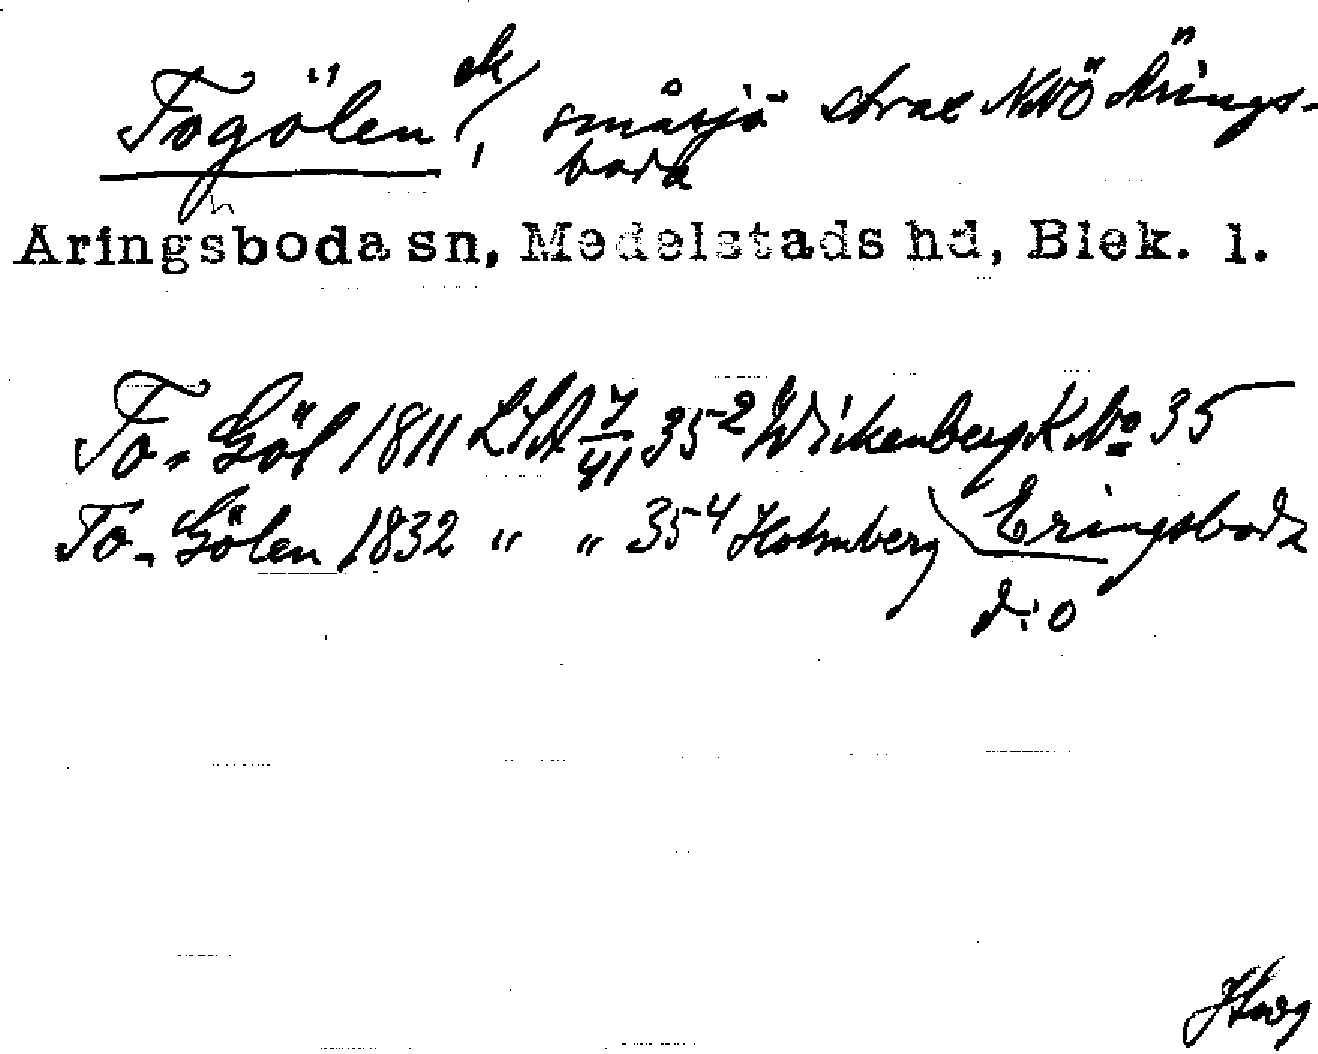 Togölen ek/, småsjö strax NNÖ Ärings-
boda
Aringsboda sn, Medelstads hd, Blek. l.
To-Göl 1811 LSA 7/41 35-2 Wikenberg K No 35
To-Gölen 1832 " " 35-4 Holmberg Eringsboda
d:o